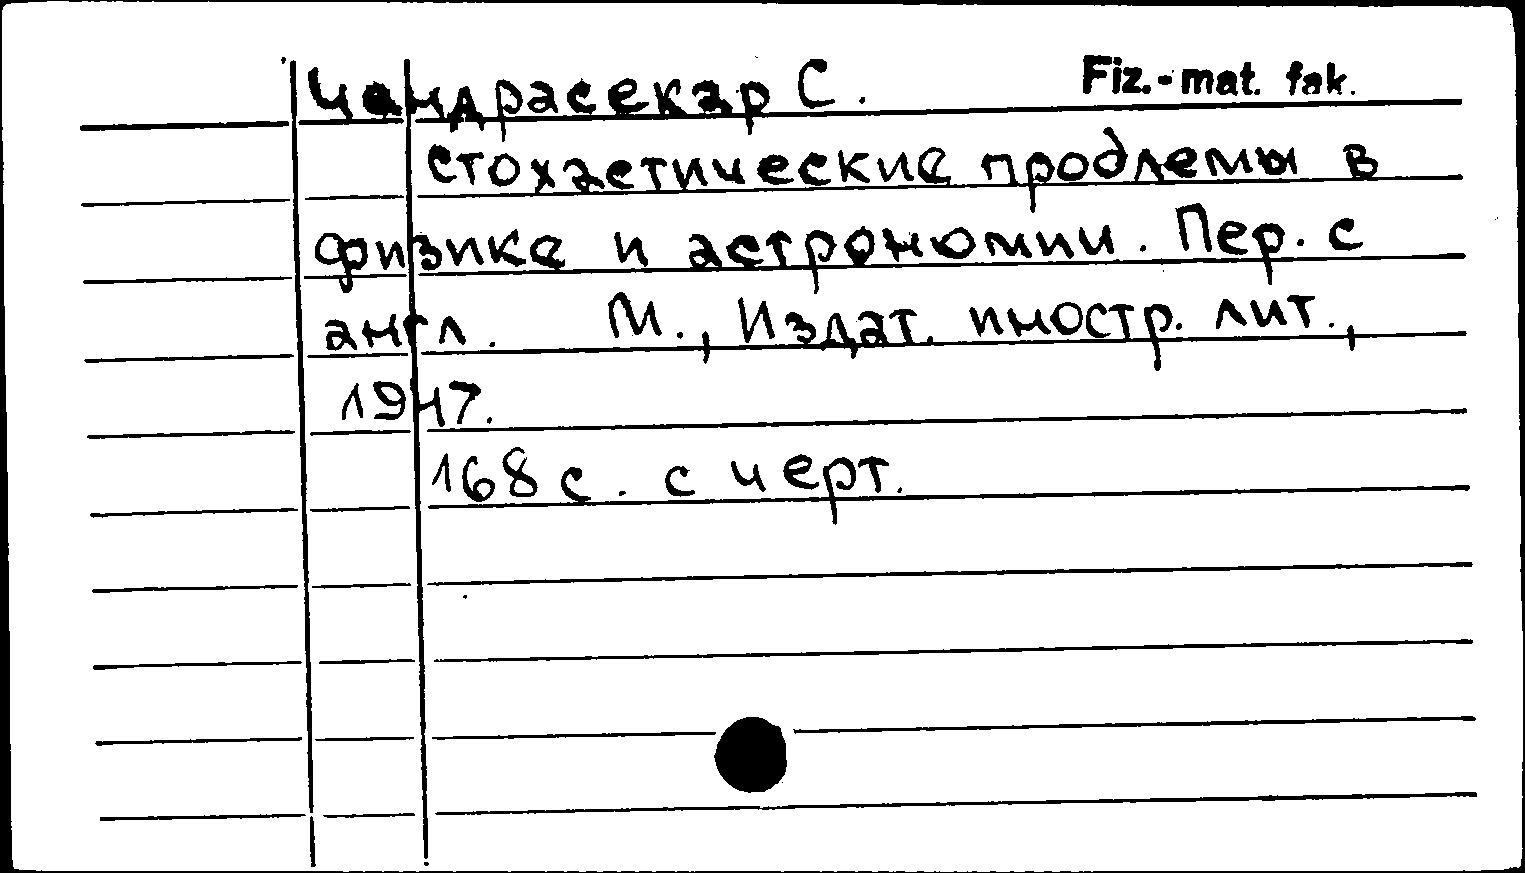 Чандрасекар С. Fiz.-mat. fak.
Стохастические проблемы в
физике и астрономии. Пер. с
англ. М., Издат. иностр. лит.,
1947.
168 с. с черт.